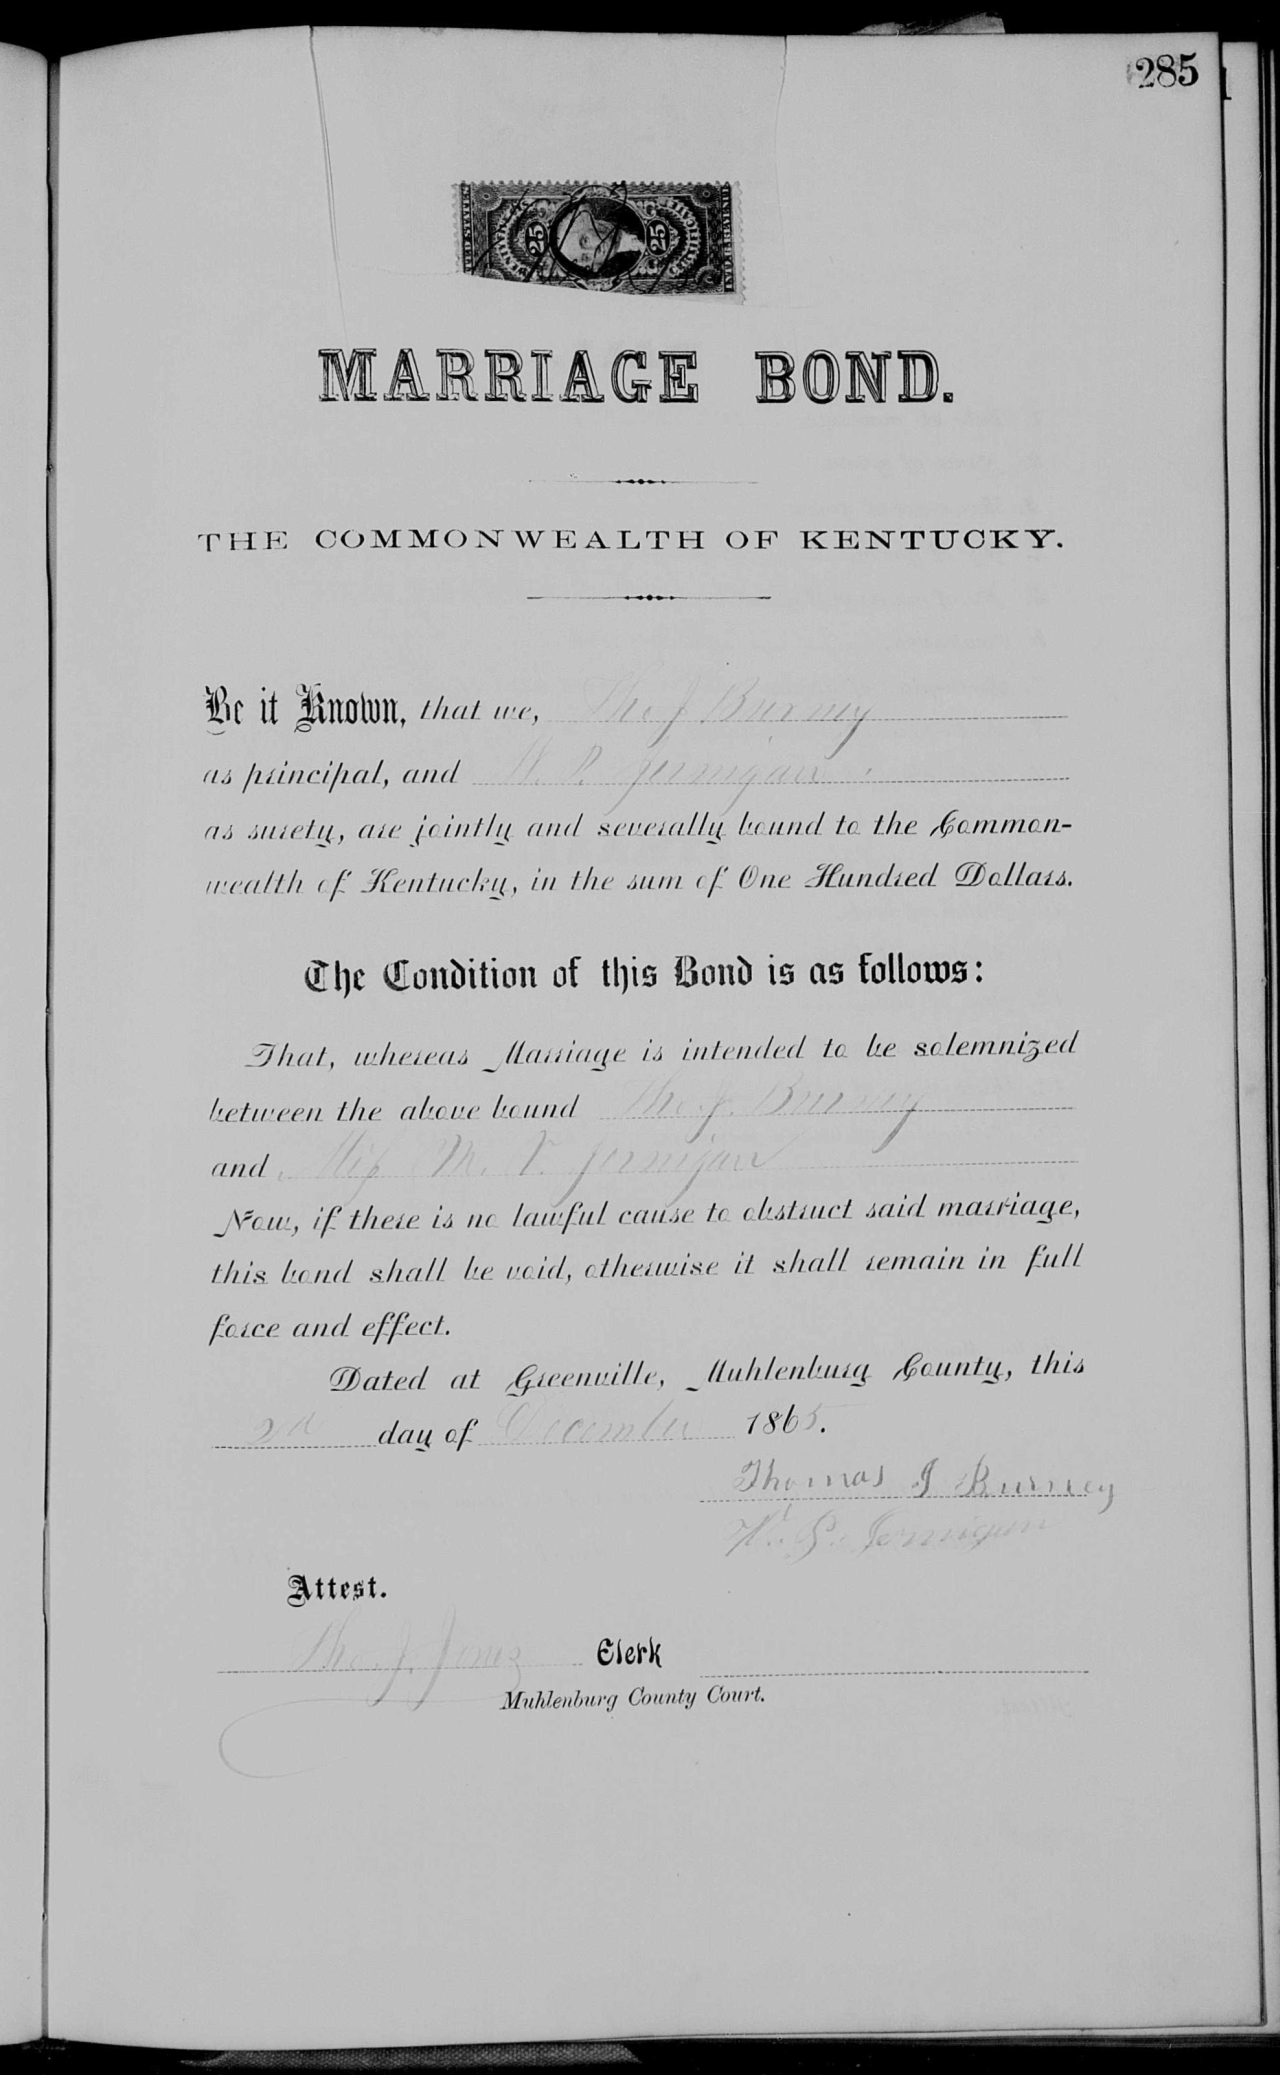 285
UNITED STATES
INTER. REVENUE
25
25
CERTIFICATE
MARRIAGE BOND.
THE COMMONWEALTH OF KENTUCKY.
Be it Known, that we, Tho. J Burney
as principal, and W. P. Jernigan
as surety, are jointly and severally bound to the Common-
wealth of Kentucky, in the sum of One Hundred Dollars.
The Condition of this Bond is as follows:
That, whereas Marriage is intended to be solemnized
between the above bound Tho. J. Burney
and Miss M. V. Jernigan
Now, if there is no lawful cause to obstruct said marriage,
this bond shall be void, otherwise it shall remain in full
force and effect.
Dated at Greenville, Muhlenburg County, this
2d day of December 1865.
Thomas J Burney
Jernigan
Attest.
Tho. J. Jones Clerk
Muhlenburg County Court.